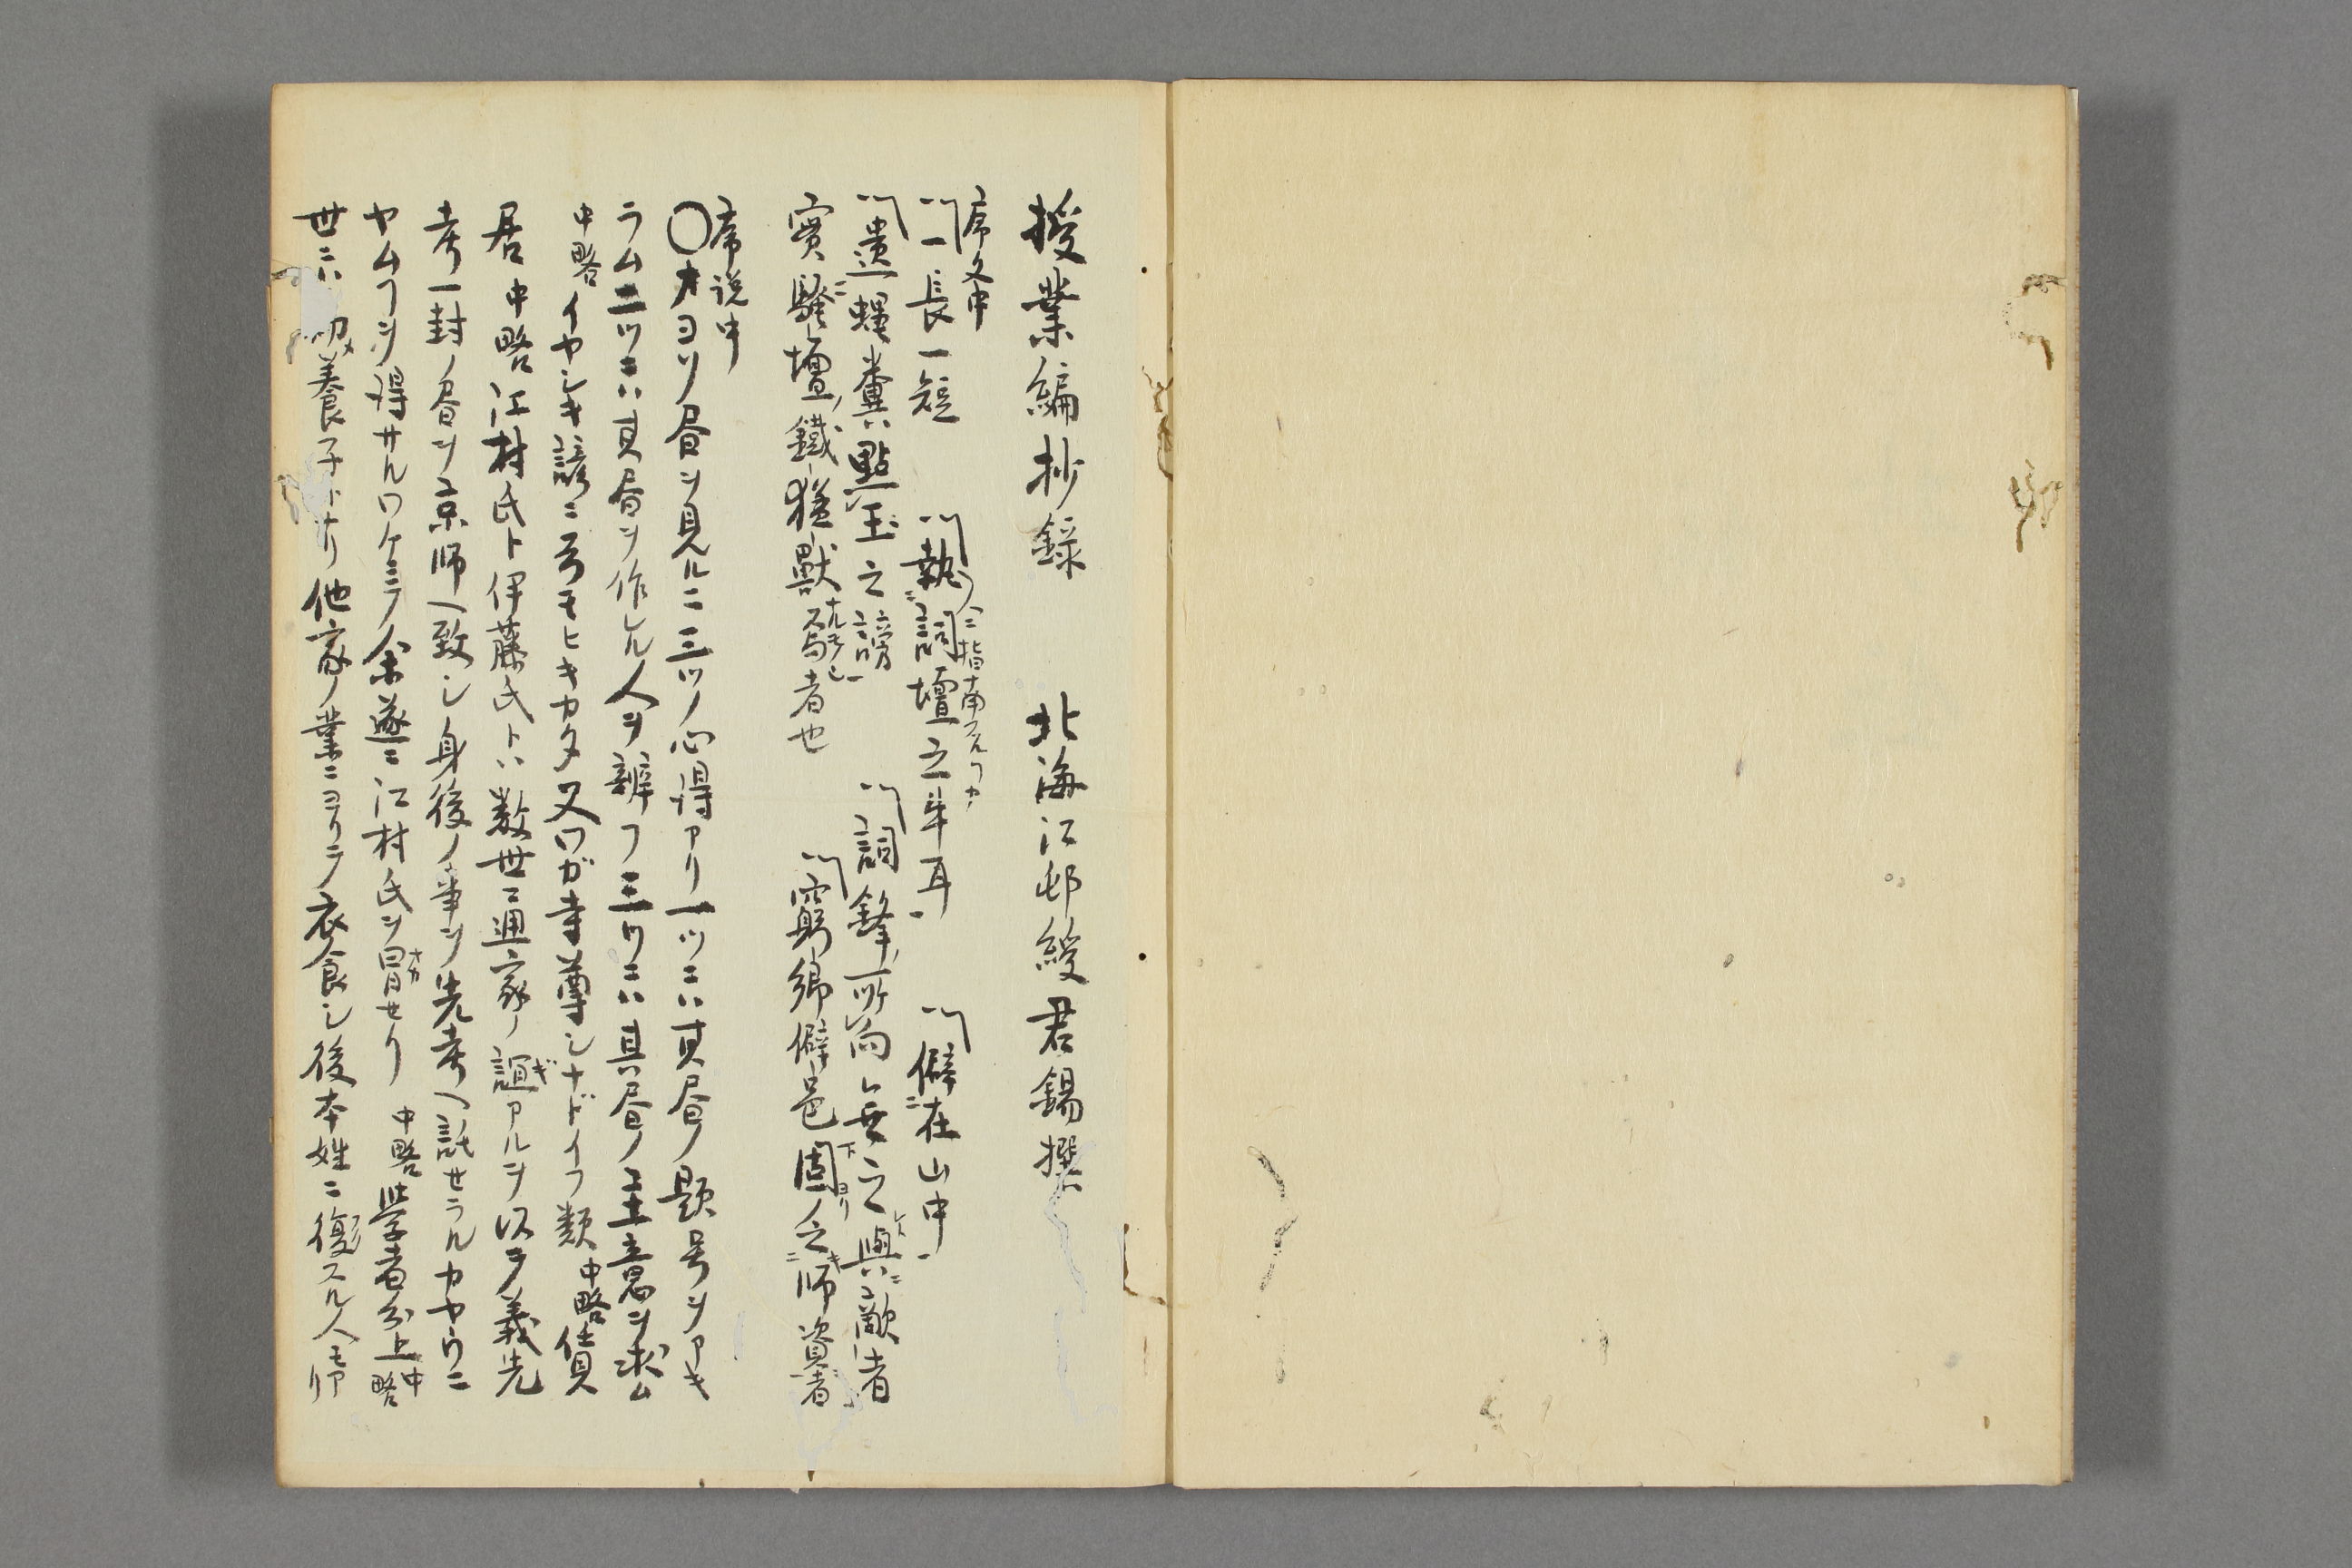 授業編抄録　　北海江邨綬君錫撰
序文中
〽一長一短　〽執詞壇之牛耳　〽僻在山中
〽遺蠅糞點玉之謗　〽詞鋒所向無之與敵者
實騒壇鐵猛獣ナルモノ也　〽窮郷僻邑固之師資者
序説中
〇オヨソ書ヲ見ルニ三ツノ心得アリ一ツニハ其書ノ題号ヲアキ
ラム二ツニハ其書ヲ作レル人ヲ辨フ三ツニハ其書ノ主意ヲ求ム
中略イヤシキ諺ニ云モヒキカタ又ワガ寺尊シナドイフ類中略僦
居中略江村氏ト伊藤氏トハ数世ニ通家ノ誼ギアルヲ以テ義先
考一封ノ書ヲ京師ヘ致シ身後ノ事ヲ先考ヘ託セラルカヤウニ
ヤムフヲ得サルワケニテ余遂ニ江村氏ヲ冒オカセリ　中略学者分上中略
世ニハ 養子トナリ他家ノ業ニヨリテ衣食シ後本姓ニ復スル人モアリ